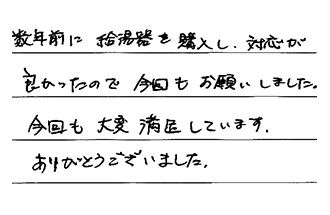 数年前に 給湯器を購入し、対応が
良かったので 今回も お願いしました。
今回も 大変 満足しています。
ありがとうございました。